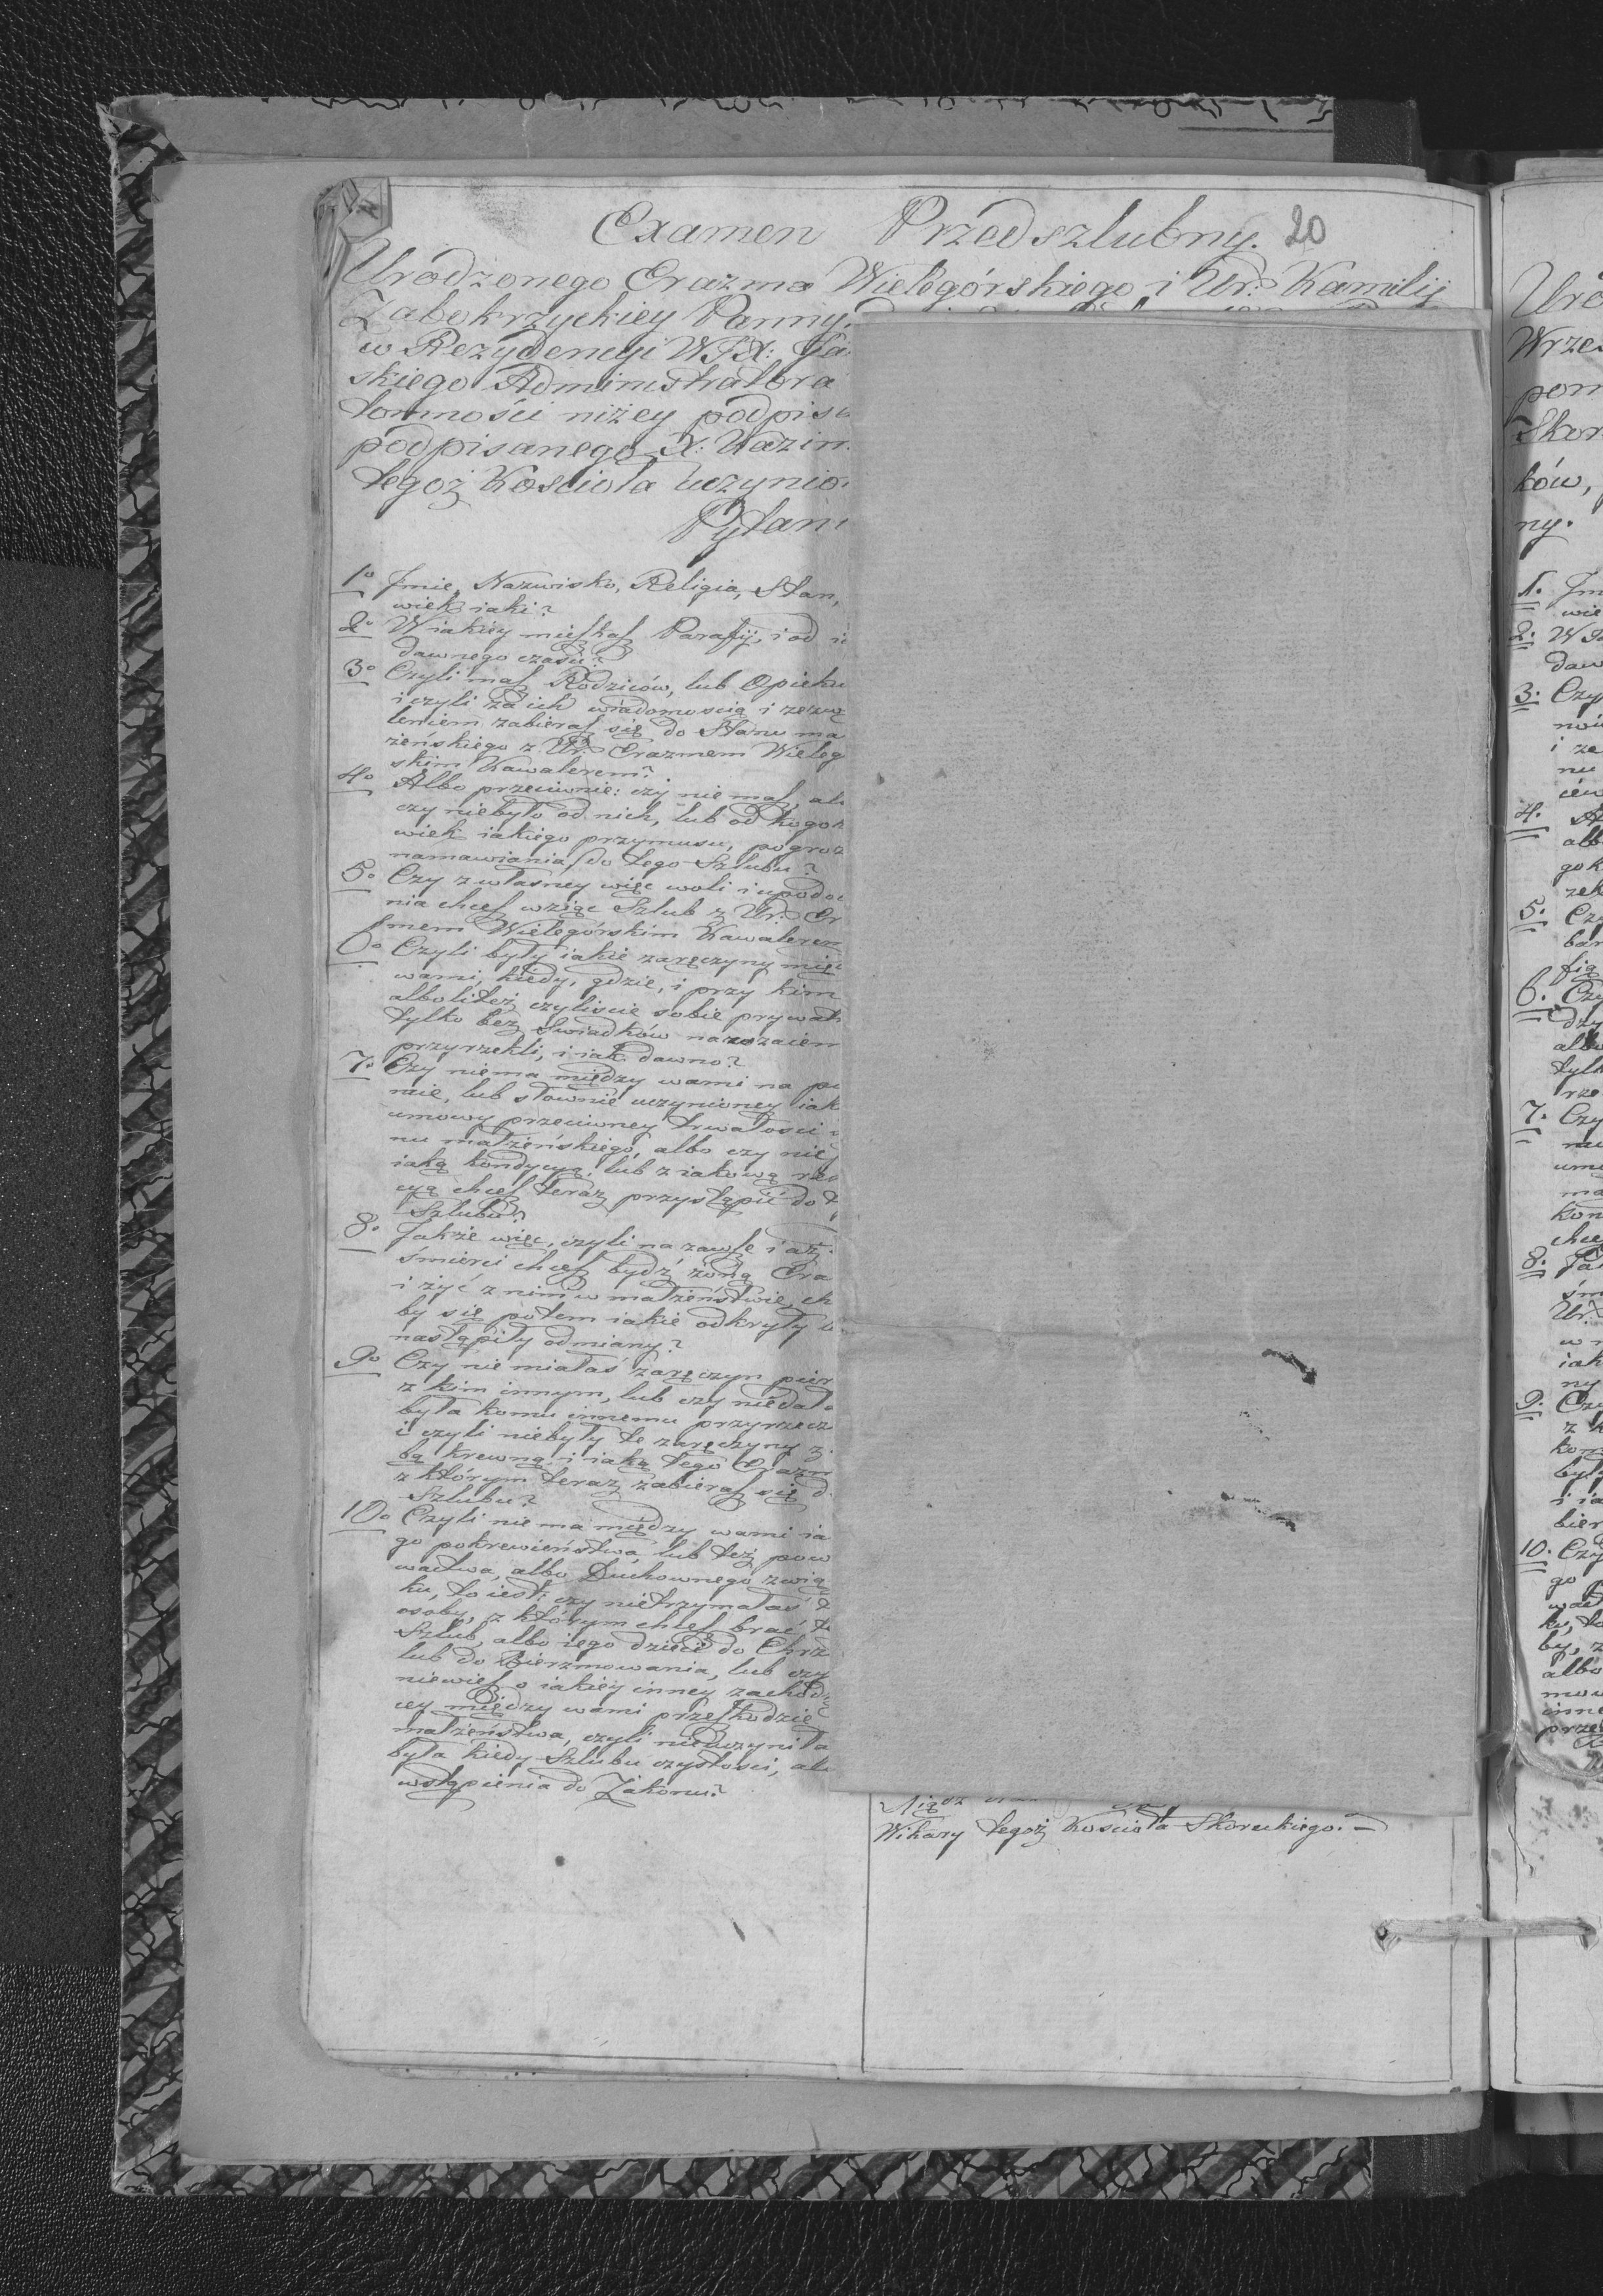 Examen Przedszlubny. 20
Urodzonego Erazma Wielogórskiego i Ur: Kamilij
Zabokrzyckiey Panny,
w Rezydencyi WJX: Ja
skiego Administratora
tomności niżey podpisa
podpisanego X: Kazim
tegoż Kościoła uczynio
Pytani
1o Jmie, Nazwisko, Religia, Stan,
wiek iaki?
2o W iakiey mieszkasz Parafij, i od i
dawnego czasu?
3o Czyli masz Rodziców, lub Opieku
i czyli za ich wiadomością i zezwo
leniem zabierasz się do Stanu ma
żeńskiego z Ur: Erazmem Wieleg
skim Kawalerem?
4o Albo przeciwnie: czy nie masz, al
czy niebyło od nich, lub od kogok
wiek iakiego przymusu, pogroz
namawiania do tego Szlubu?
5o Czy z własney więc woli i upodo
nia chcesz wziąc Szlub z Ur: Er
zmem Wielegórskim Kawalerem
6o Czyli były iakie zaręczyny mię
wami, kiedy, gdzie, i przy kim
albo liteż czyliście sobie prywat
tylko bez Swiadków nawzaiem
przyrzekli, i iak dawno?
7o Czy niema między wami na pi
mie, lub słownie uczynioney iak
umowy przeciwney trwałości
nu małżeńskiego, albo czy nie
iaką kondycyą, lub z iakową re
cyą chcesz teraz przystąpić do t
Szlubu?
8o Jakże więc, czyli na zawsze i aż
śmierci chcesz bydź żoną Era
i żyć z nim w małżeństwie, ch
by się potem iakie odkryły
nastąpiły odmiany?
9o Czy nie miałaś zaręczyn pier
z kim innym, lub czy niedała
była komu innemu przyrzecz
i czyli niebyły te zaręczyny z
bą krewną i iaką tego Erazm
z którym teraz zabierasz się d
Szlubu?
10o Czyli nie ma między wami ia
go pokrewieństwa lub też pow
wactwa, albo Duchownego zwią
ku, to iest: czy nietrzymałaś t
osoby, z którym chcesz brać te
Szlub, albo iego dziecie do Chrz
lub do Bierzmowania, lub czy
niewiesz o iakiey inney zachodz
cey między wami przeszkodzie
małżeństwa, czyli nieuczyniła
była kiedy Szlubu czystości, al
wstąpienia do Zakonu?
Wikary tegoż Kościoła Skoreckiego.
Uro
Wrze
pom
Skor
ków,
ny.
1. Jm
wie
2. W
daw
3. Czy
i ze
nu
4. A
alb
gok
5. Cz
6. Czy
dzy
albo
tylk
rze
7. Czy
umo
ma
kon
chce
8. Ja
śm
Ur:
iak
ny
9. Cz
z k
był
i ia
bier
10. Czy
go
wact
ku, to
by, z
albo
mow
inne
prze